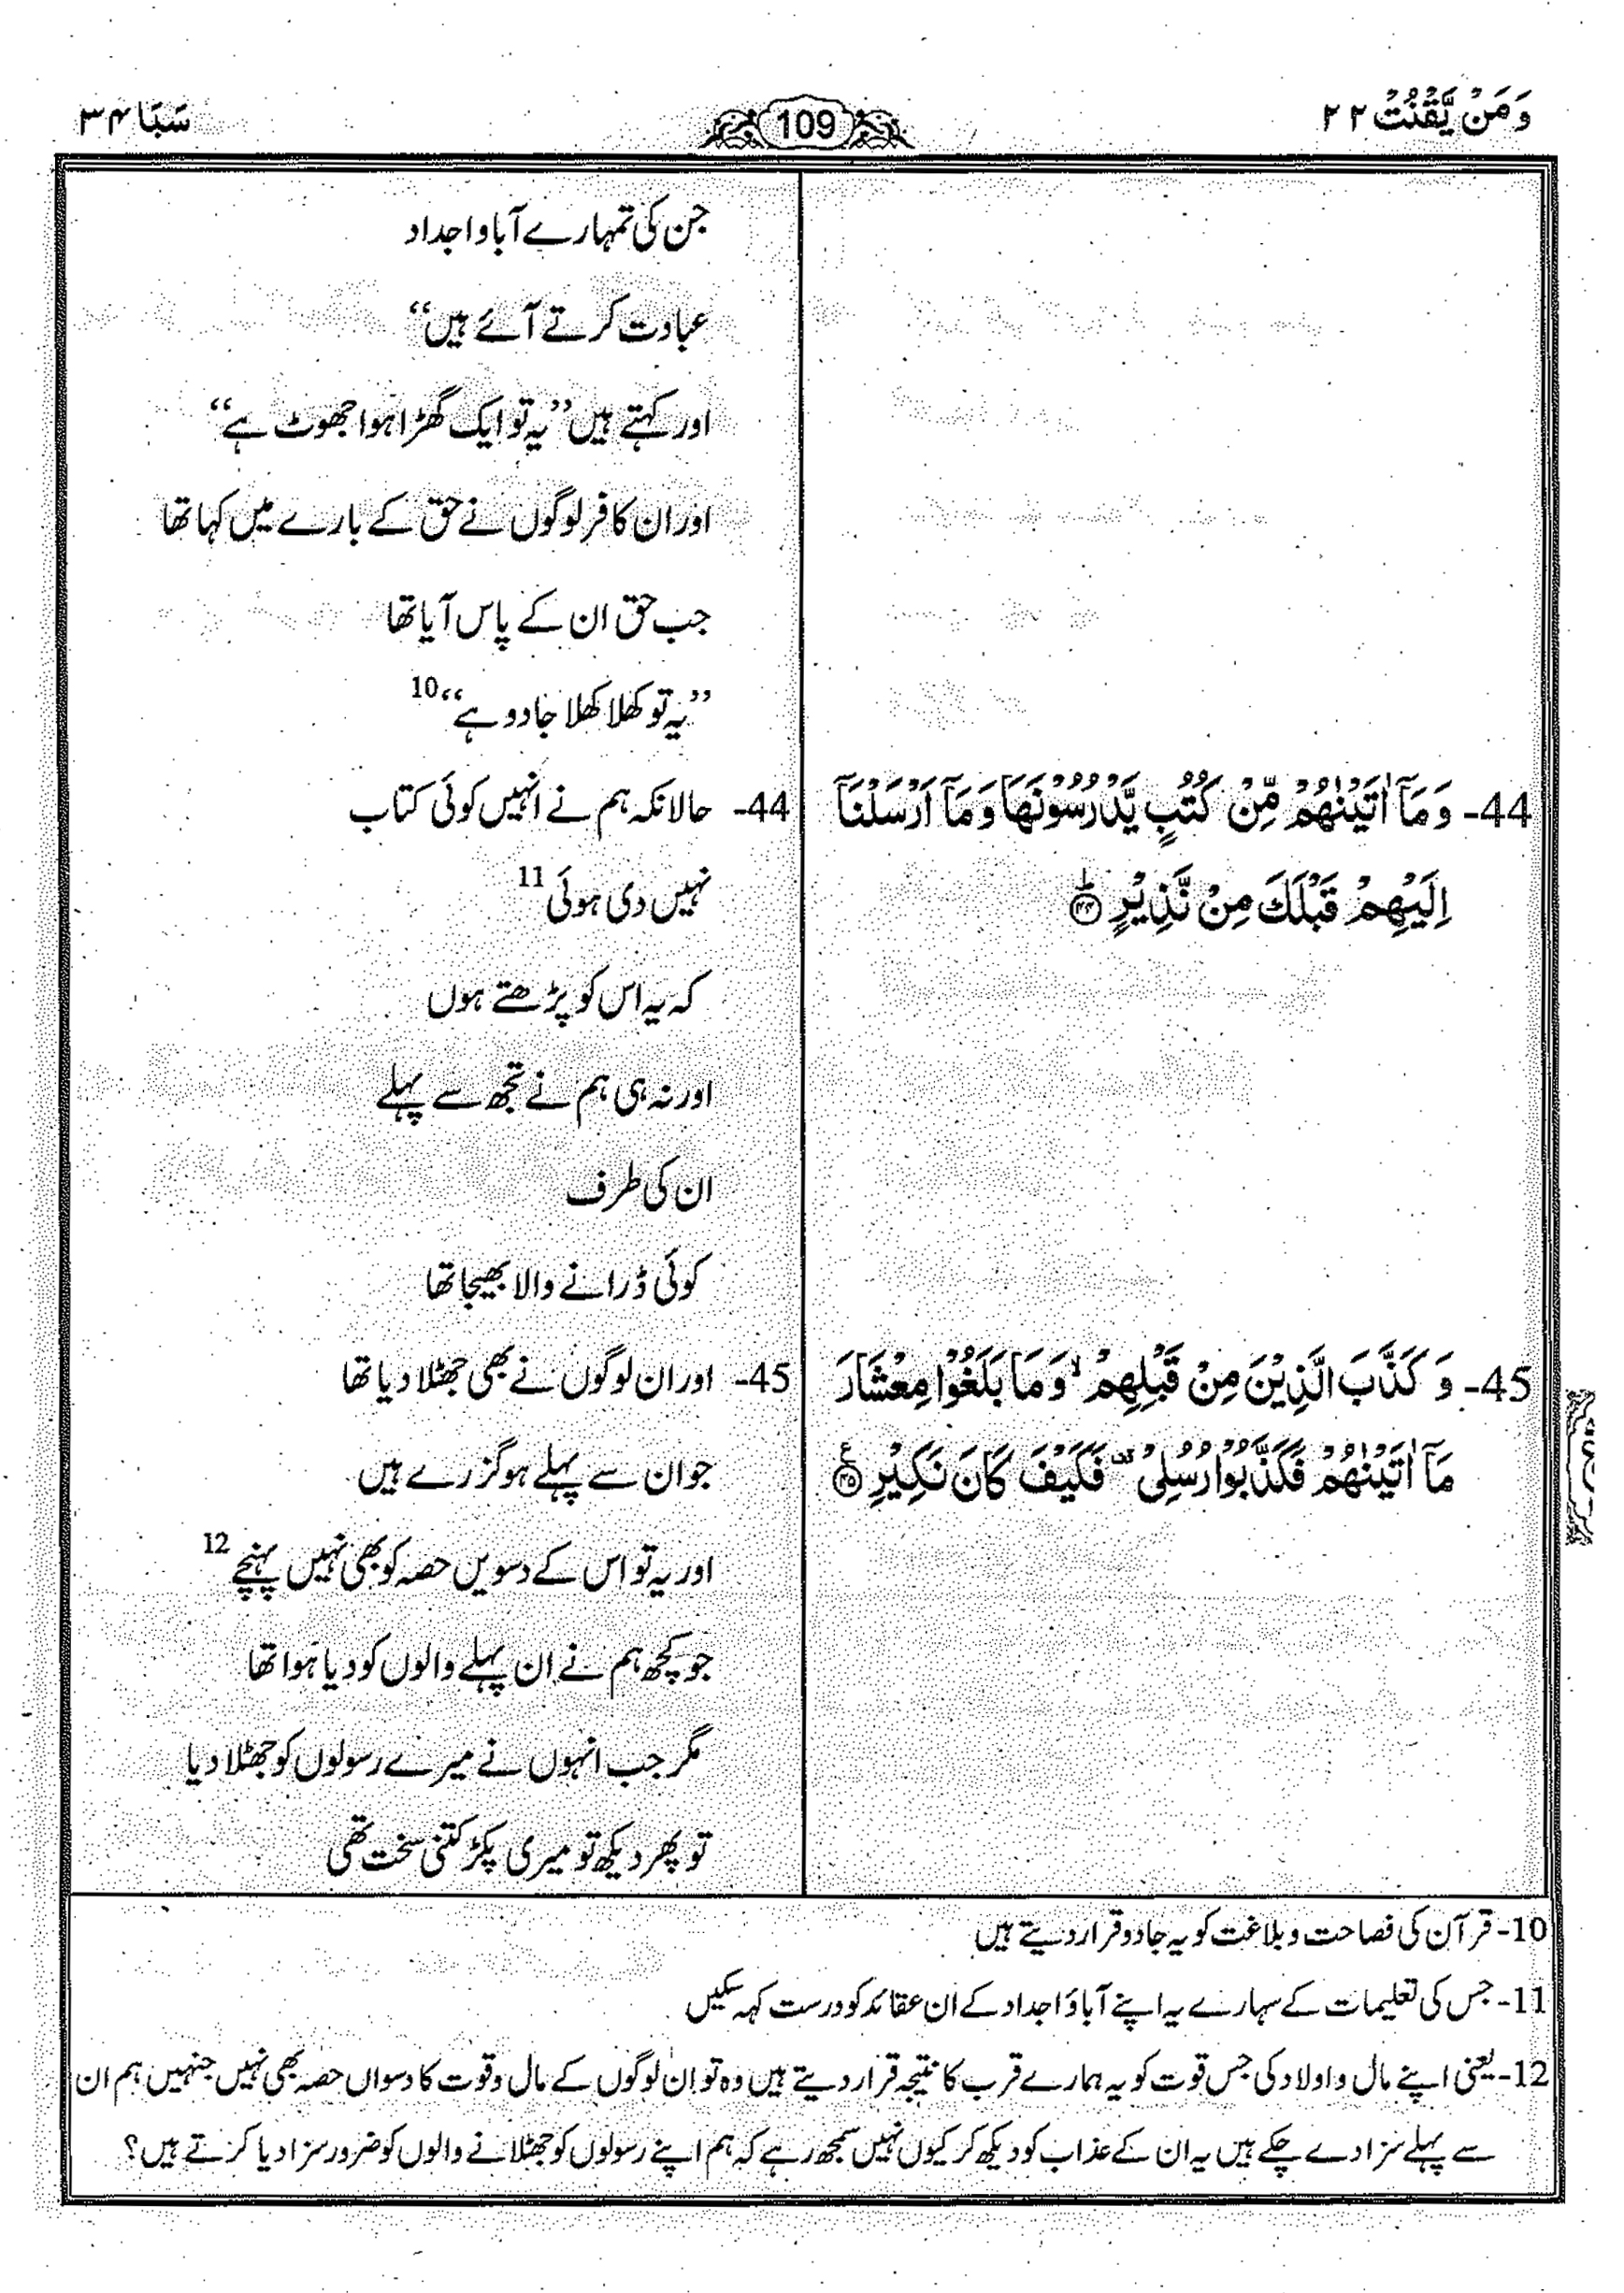 وَمَنْ يَّقْنُتْ ۲۲
109
سَبَا ۳۴
جن کی تمہارے آباو اجداد
عبادت کرتے آئے ہیں‘‘
اور کہتے ہیں ’’یہ تو ایک گھڑا ہوا جھوٹ ہے‘‘
اور ان کافر لوگوں نے حق کے بارے میں کہا تھا
جب حق ان کے پاس آیا تھا
’’یہ تو کھلا کھلا جادو ہے‘‘ 10
44- وَمَآ اٰتَيْنٰهُمْ مِّنْ كُتُبٍ يَّدْرُسُوْنَهَا وَمَآ اَرْسَلْنَآ
اِلَيْهِمْ قَبْلَكَ مِنْ نَّذِيْرٍ ؕ ۴۴
44- حالانکہ ہم نے انہیں کوئی کتاب
نہیں دی ہوئی 11
کہ یہ اس کو پڑھتے ہوں
اور نہ ہی ہم نے تجھ سے پہلے
ان کی طرف
کوئی ڈرانے والا بھیجا تھا
45- وَ كَذَّبَ الَّذِيْنَ مِنْ قَبْلِهِمْ ۙ وَمَا بَلَغُوْا مِعْشَارَ
مَآ اٰتَيْنٰهُمْ فَكَذَّبُوْا رُسُلِيْ ۫ فَكَيْفَ كَانَ نَكِيْرِ ۴۵ ع
45- اور ان لوگوں نے بھی جھٹلا دیا تھا
جو ان سے پہلے ہو گزرے ہیں
اور یہ تو اس کے دسویں حصہ کو بھی نہیں پہنچے 12
جو کچھ ہم نے ان پہلے والوں کو دیا ہوا تھا
مگر جب انہوں نے میرے رسولوں کو جھٹلا دیا
تو پھر دیکھ تو میری پکڑ کتنی سخت تھی
10- قرآن کی فصاحت و بلاغت کو یہ جادو قرار دیتے ہیں
11- جس کی تعلیمات کے سہارے یہ اپنے آباؤ اجداد کے ان عقائد کو درست کہہ سکیں
12- یعنی اپنے مال و اولاد کی جس قوت کو یہ ہمارے قرب کا نتیجہ قرار دیتے ہیں وہ تو ان لوگوں کے مال و قوت کا دسواں حصہ بھی نہیں جنہیں ہم ان
سے پہلے سزا دے چکے ہیں یہ ان کے عذاب کو دیکھ کر کیوں نہیں سمجھ رہے کہ ہم اپنے رسولوں کو جھٹلانے والوں کو ضرور سزا دیا کرتے ہیں؟